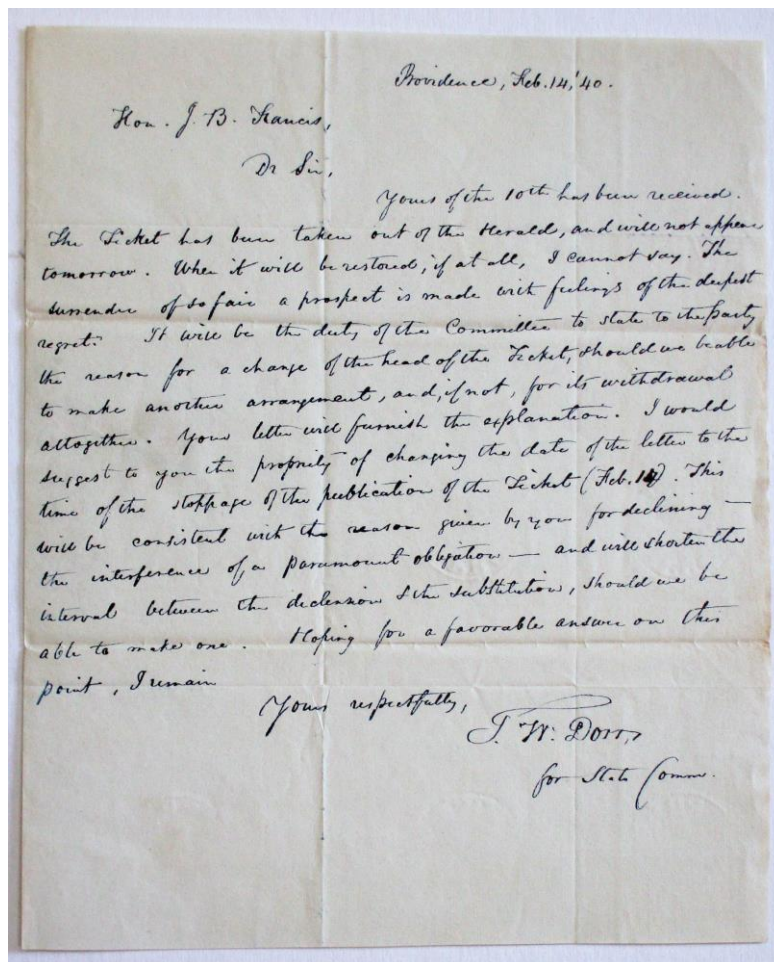 Providence, Feb. 14, '40.
Hon. J. B. Francis,
Dr Sir,
Yours of the 10th has been received.
The Ticket has been taken out of the Herald, and will not appear
tomorrow. When it will be restored, if at all, I cannot say. The
surrender of so fair a prospect is made with feelings of the deepest
regret. It will be the duty of the Committee to state to the Party
the reason for a change of the head of the Ticket, should we be able
to make another arrangement, and, if not, for its withdrawal
altogether. Your letter will furnish the explanation. I would
suggest to you the propriety of changing the date of the letter to the
time of the stoppage of the publication of the Ticket (Feb. 14). This
will be consistent with the reason given by you for declining —
the interference of a paramount obligation — and will shorten the
interval between the declension & the substitution, should we be
able to make one. Hoping for a favorable answer on this
point, I remain
Yours respectfully,
T. W. Dorr,
for State Comm.